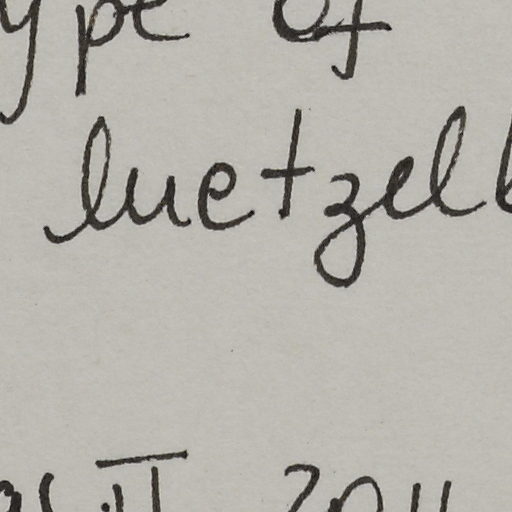 ype of
luetzelb
II 2011